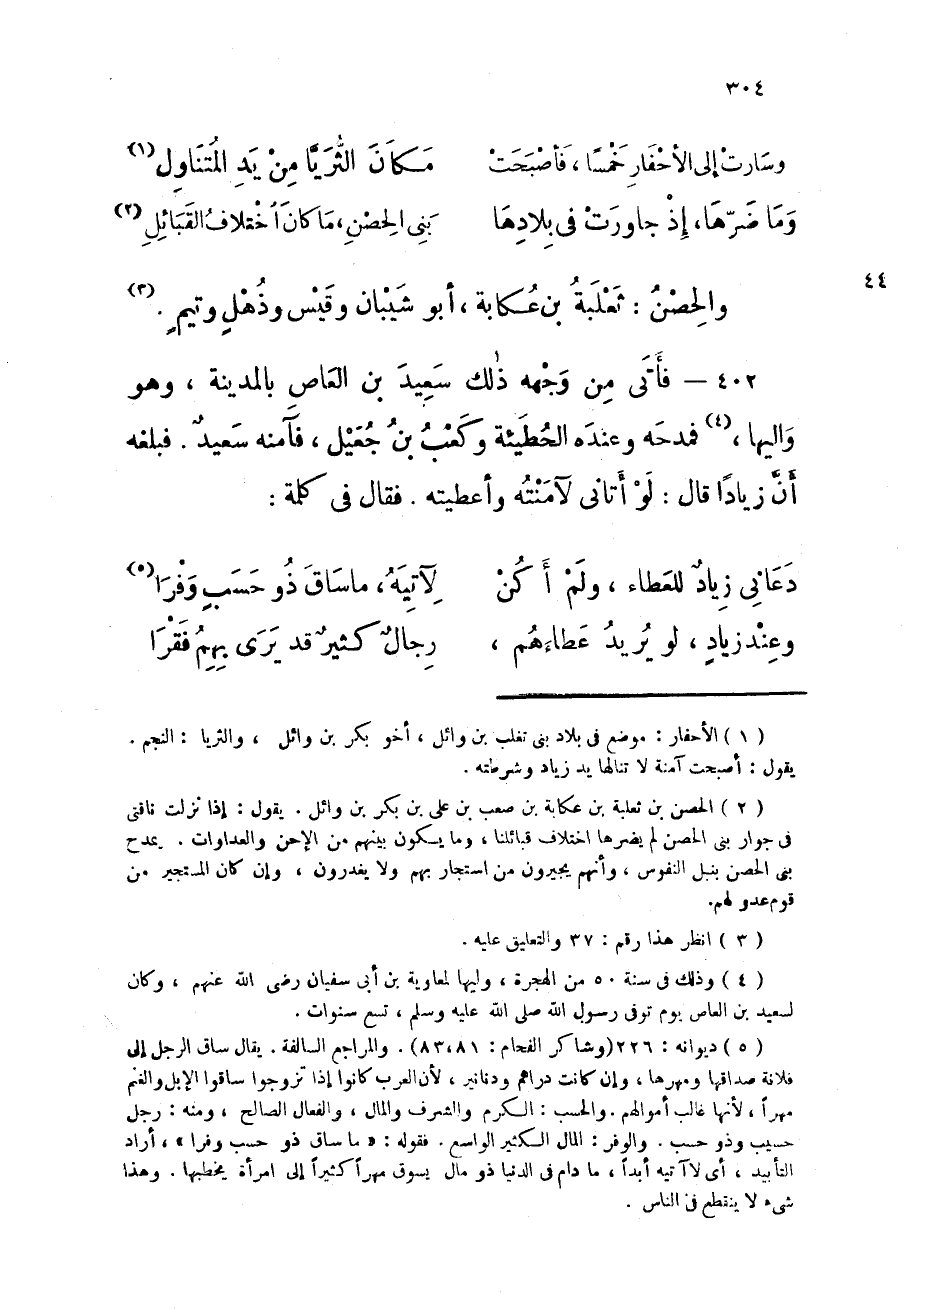 ٣٠٤
وسَارتْ إلى الأحْفارِ خَمْسًا ، فَأصْبَحَتْ مَكَانَ الثُّرَيَّا مِنْ يَدِ المُتَنَاوِلِ (١)
وَمَا ضَرّهَا، إِذْ جاورَتْ فى بِلادِهَا بَنِى الحِصْنِ، مَا كانَ اخْتِلافُ القَبَائِلِ (٢)
٤٤
والحِصْنُ : ثَعْلَبَةُ بن عُكابة ، أبو شَيْبان وقَيْس وذُهْلٍ وتيمٍ . (٣)
٤٠٢ — فَأَتَى مِن وَجْهه ذٰلك سَعِيدَ بن العَاصِ بالمدينة ، وهو
وَاليها ، (٤) فمدحَه وعندَه الحُطَيئة وكَعْبُ بنُ جُعَيْل ، فَآمنه سَعيدٌ . فبلغه
أَنَّ زيادًا قال : لَوْ أَتانى لآمَنْتُه وأعطيته . فقال فى كلمة :
دَعَانِى زِيادٌ للعَطاء ، ولَمْ أَكُنْ لِآتِيَهُ، ماسَاقَ ذُو حَسَبٍ وَفْرَا (٥)
وعِنْد زيادٍ ، لو يُرِيدُ عَطاءَهُم ، رِجالٌ كثيرٌ قد يَرَى بِهِمُ فَقْرَا
( ١ ) الأحفار : موضع فى بلاد بنى تغلب بن وائل ، أخو بكر بن وائل ، والثريا : النجم .
يقول : أصبحت آمنة لا تنالها يد زياد وشرطته .
( ٢ ) الحصن بن ثعلبة بن عكابة بن صعب بن على بن بكر بن وائل . يقول : إذا نزلت ناقتى
فى جوار بنى الحصن لم يضرها اختلاف قبائلنا ، وما يكون بينهم من الإحن والعداوات . يمدح
بنى الحصن بنبل النفوس ، وأنهم يجيرون من استجار بهم ولا يغدرون ، وإن كان المستجير من
قوم عدو لهم.
( ٣ ) انظر هذا رقم : ٣٧ والتعليق عليه .
( ٤ ) وذلك فى سنة ٥٠ من الهجرة ، وليها لمعاوية بن أبى سفيان رضى الله عنهم ، وكان
لسعيد بن العاص يوم توفى رسول الله صلى الله عليه وسلم ، تسع سنوات .
( ٥ ) ديوانه : ٢٢٦ (وشاكر الفحام : ٨١، ٨٣) . والمراجع السالفة . يقال ساق الرجل إلى
فلانة صداقها ومهرها ، وإن كانت دراهم ودنانير ، لأن العرب كانوا إذا تزوجوا ساقوا الإبل والغنم
مهراً ، لأنها غالب أموالهم . والحسب : الكرم والشرف والمال ، والفعال الصالح ، ومنه : رجل
حسيب وذو حسب . والوفر : المال الكثير الواسع . فقوله : « ما ساق ذو حسب وفرا » ، أراد
التأبيد ، أى لا آتيه أبداً ، ما دام فى الدنيا ذو مال يسوق مهراً كثيراً إلى امرأة يخطبها . وهذا
شىء لا ينقطع فى الناس .